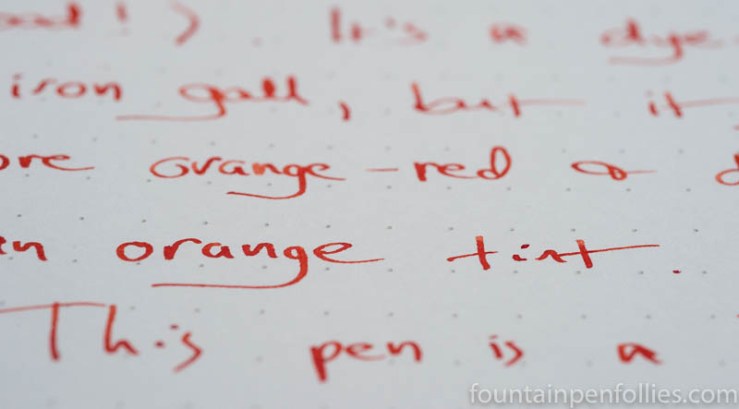 ! ) . It's a dye-
iron gall, but it
ore orange-red
en orange tint.
This pen is a
fountainpenfollies.com